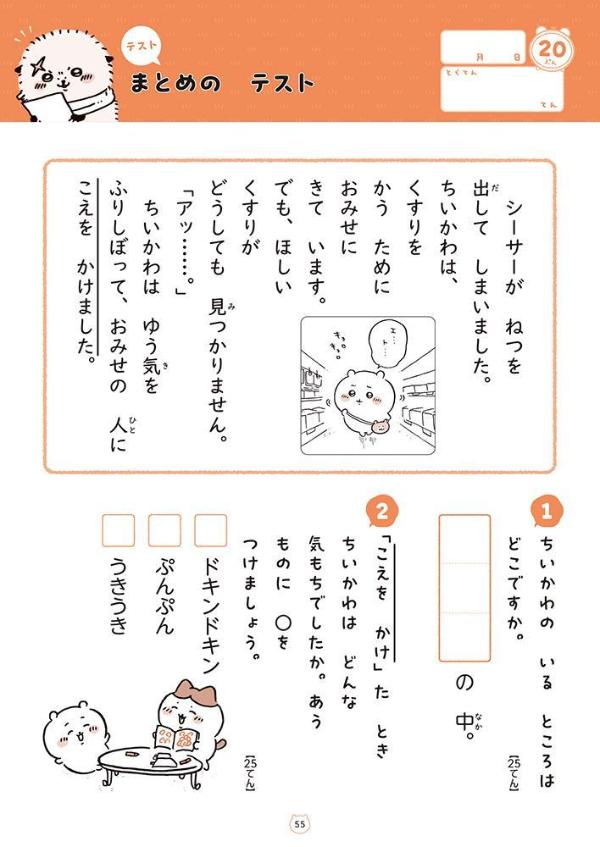 テスト
まとめの　テスト
月　日
20
ぷん
とくてん
てん
シーサーが　ねつを
出して　しまいました。
ちいかわは、
くすりを
かう　ために
おみせに
きて　います。
でも、ほしい
くすりが
どうしても　見つかりません。
「アッ……。」
ちいかわは　ゆう気を
ふりしぼって、おみせの　人に
こえを　かけました。
だ
み
き
ひと
エ…
ト…
キョロ
キョロ
1
ちいかわの　いる　ところは
どこですか。
[25てん]
の　中。
なか
2
「こえを　かけ」た　とき
ちいかわは　どんな
気もちでしたか。あう
ものに　○を
つけましょう。
[25てん]
ドキンドキン
ぷんぷん
うきうき
55